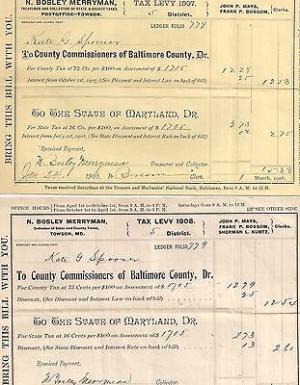 N. BOSLEY MERRYMAN, TAX LEVY 1907. JOHN P. MAYS,
TREASURER AND COLLECTOR OF STATE & COUNTY TAXES. FRANK P. BOSSOM,
POSTOFFICE-TOWSON. 5 District. Clerks.
LEDGER FOLIO 779
BRING THIS BILL WITH YOU.
Kate G Spooner
To County Commissioners of Baltimore County, Dr.
For County Tax at 72 Cts. per $100 on Assessment of $ 1705 12 28
Interest from October 1st, 1907, (See Discount and Interest Law on back of bill)
TO THE STATE OF MARYLAND, DR.
For State Tax at 16 Cts. per $100 on Assessment of $ 1705 2 73
Interest from July 1st, (See State Discount and Interest Rate on back of bill)
Received Payment,
N. Bosley Merryman Treasurer and Collector.
Jan 24 Clerk.
March, 1908.
Taxes received Saturdays at the Drovers and Mechanics' National Bank, Baltimore, from 9 A. M. to 12 M.
OFFICE HOURS: From April 1st to October 1st, from 9 A. M. to P. M. Saturdays from 9 A. M. to 12 M.
From October 1st to April 1st, from 9 A. M. to P. M. SEE OTHER SIDE.
N. BOSLEY MERRYMAN, TAX LEVY 1908. JOHN P. MAYS,
Collector of State and County Taxes, FRANK P. BOSSOM,
TOWSON, MD. 5 District. SHERMAN L. KURTZ,
LEDGER FOLIO 779
BRING THIS BILL WITH YOU.
Kate G Spooner
To County Commissioners of Baltimore County, Dr.
For County Tax at 75 Cents per $100 on Assessment of $ 1705 12 79
Discount, (See Discount and Interest Law on back of bill) 25 12 54
TO THE STATE OF MARYLAND, DR.
For State Tax at 16 Cents per $100 on Assessment of $ 1705 2 73
Discount, (See State Discount and Interest Rate on back of bill) 13 2 60
Received Payment,
N Bosley Merryman